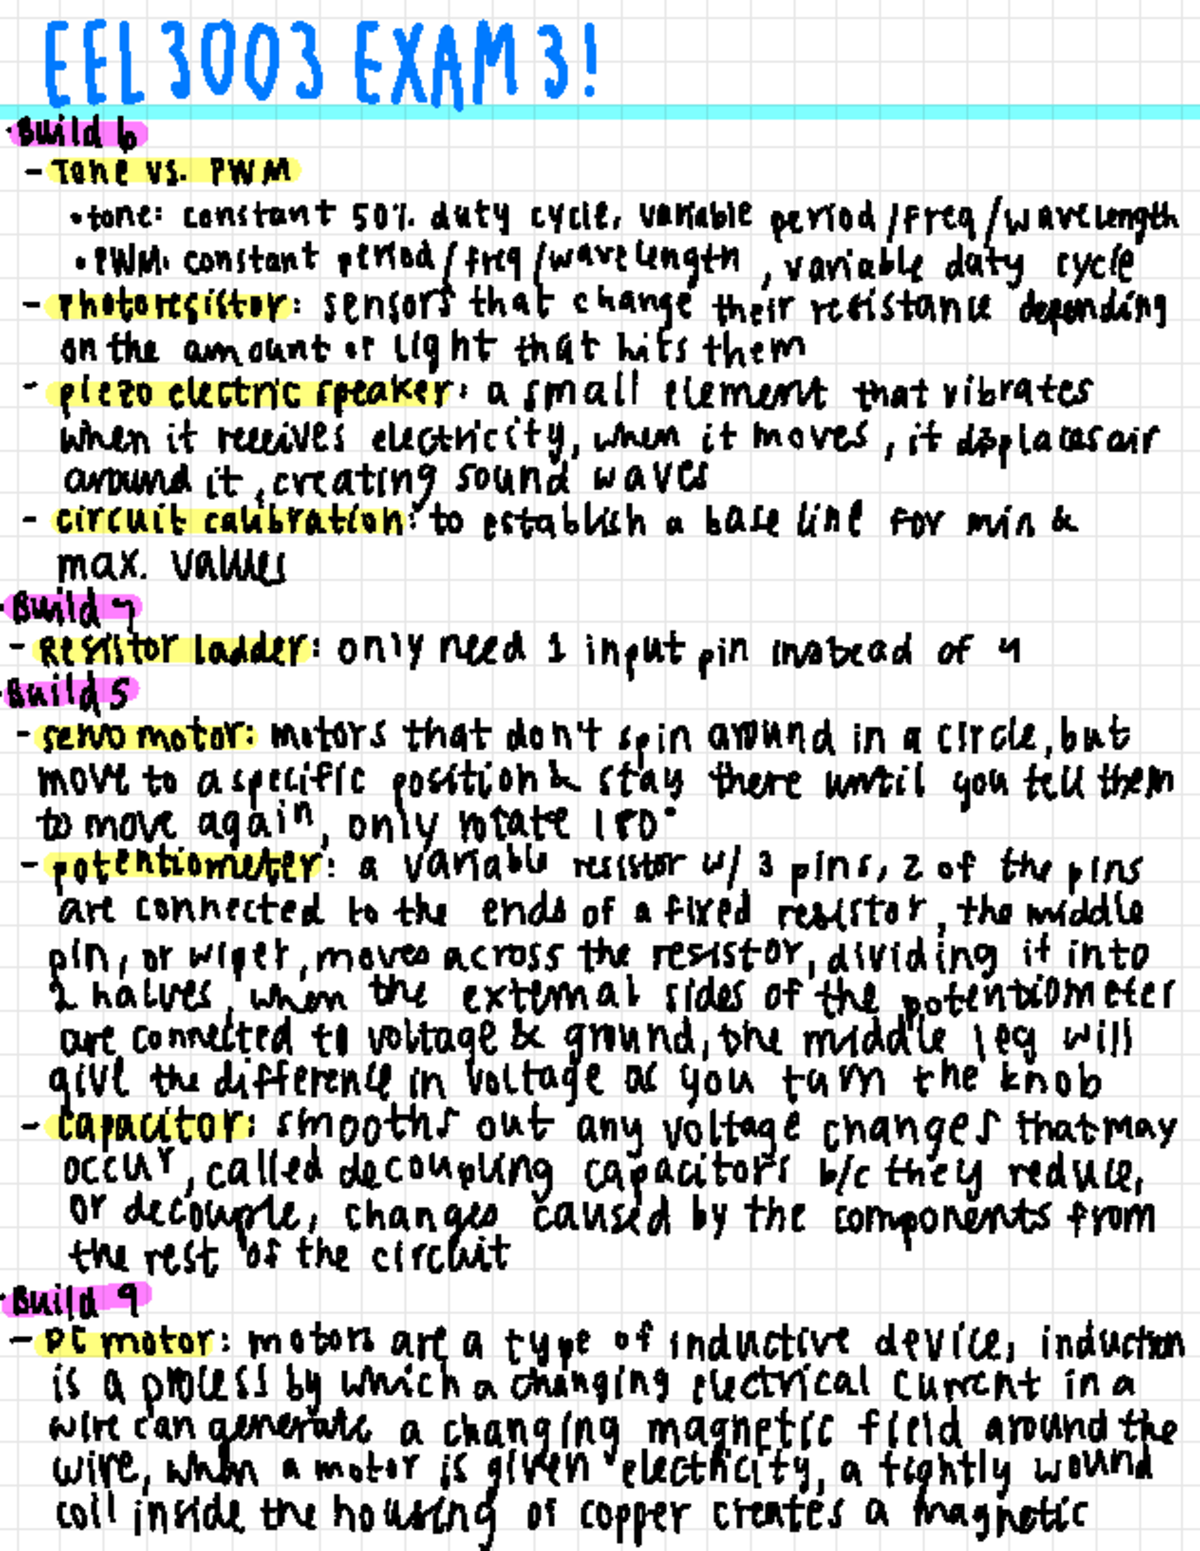 EEL3003 EXAM 3!
·Build 6
- Tone vs. PWM
•tone: constant 50% duty cycle, variable period/freq/wavelength
•PWM: constant period/freq/wavelength, variable duty cycle
- Photoresistor: sensors that change their resistance depending
on the amount of light that hits them
- piezo electric speaker: a small element that vibrates
when it receives electricity, when it moves, it displaces air
around it, creating sound waves
- circuit calibration: to establish a base line for min &
max. values
·Build 7
- Resistor ladder: only need 1 input pin instead of 4
·Build 5
- servo motor: motors that don't spin around in a circle, but
move to a specific position & stay there until you tell them
to move again, only rotate 180°
- potentiometer: a variable resistor w/ 3 pins, 2 of the pins
are connected to the ends of a fixed resistor, the middle
pin, or wiper, moves across the resistor, dividing it into
2 halves, when the external sides of the potentiometer
are connected to voltage & ground, the middle leg will
give the difference in voltage as you turn the knob
- capacitor: smooths out any voltage changes that may
occur, called decoupling capacitors b/c they reduce,
or decouple, changes caused by the components from
the rest of the circuit
·Build 9
- DC motor: motors are a type of inductive device, induction
is a process by which a changing electrical current in a
wire can generate a changing magnetic field around the
wire, when a motor is given electricity, a tightly wound
coil inside the housing of copper creates a magnetic